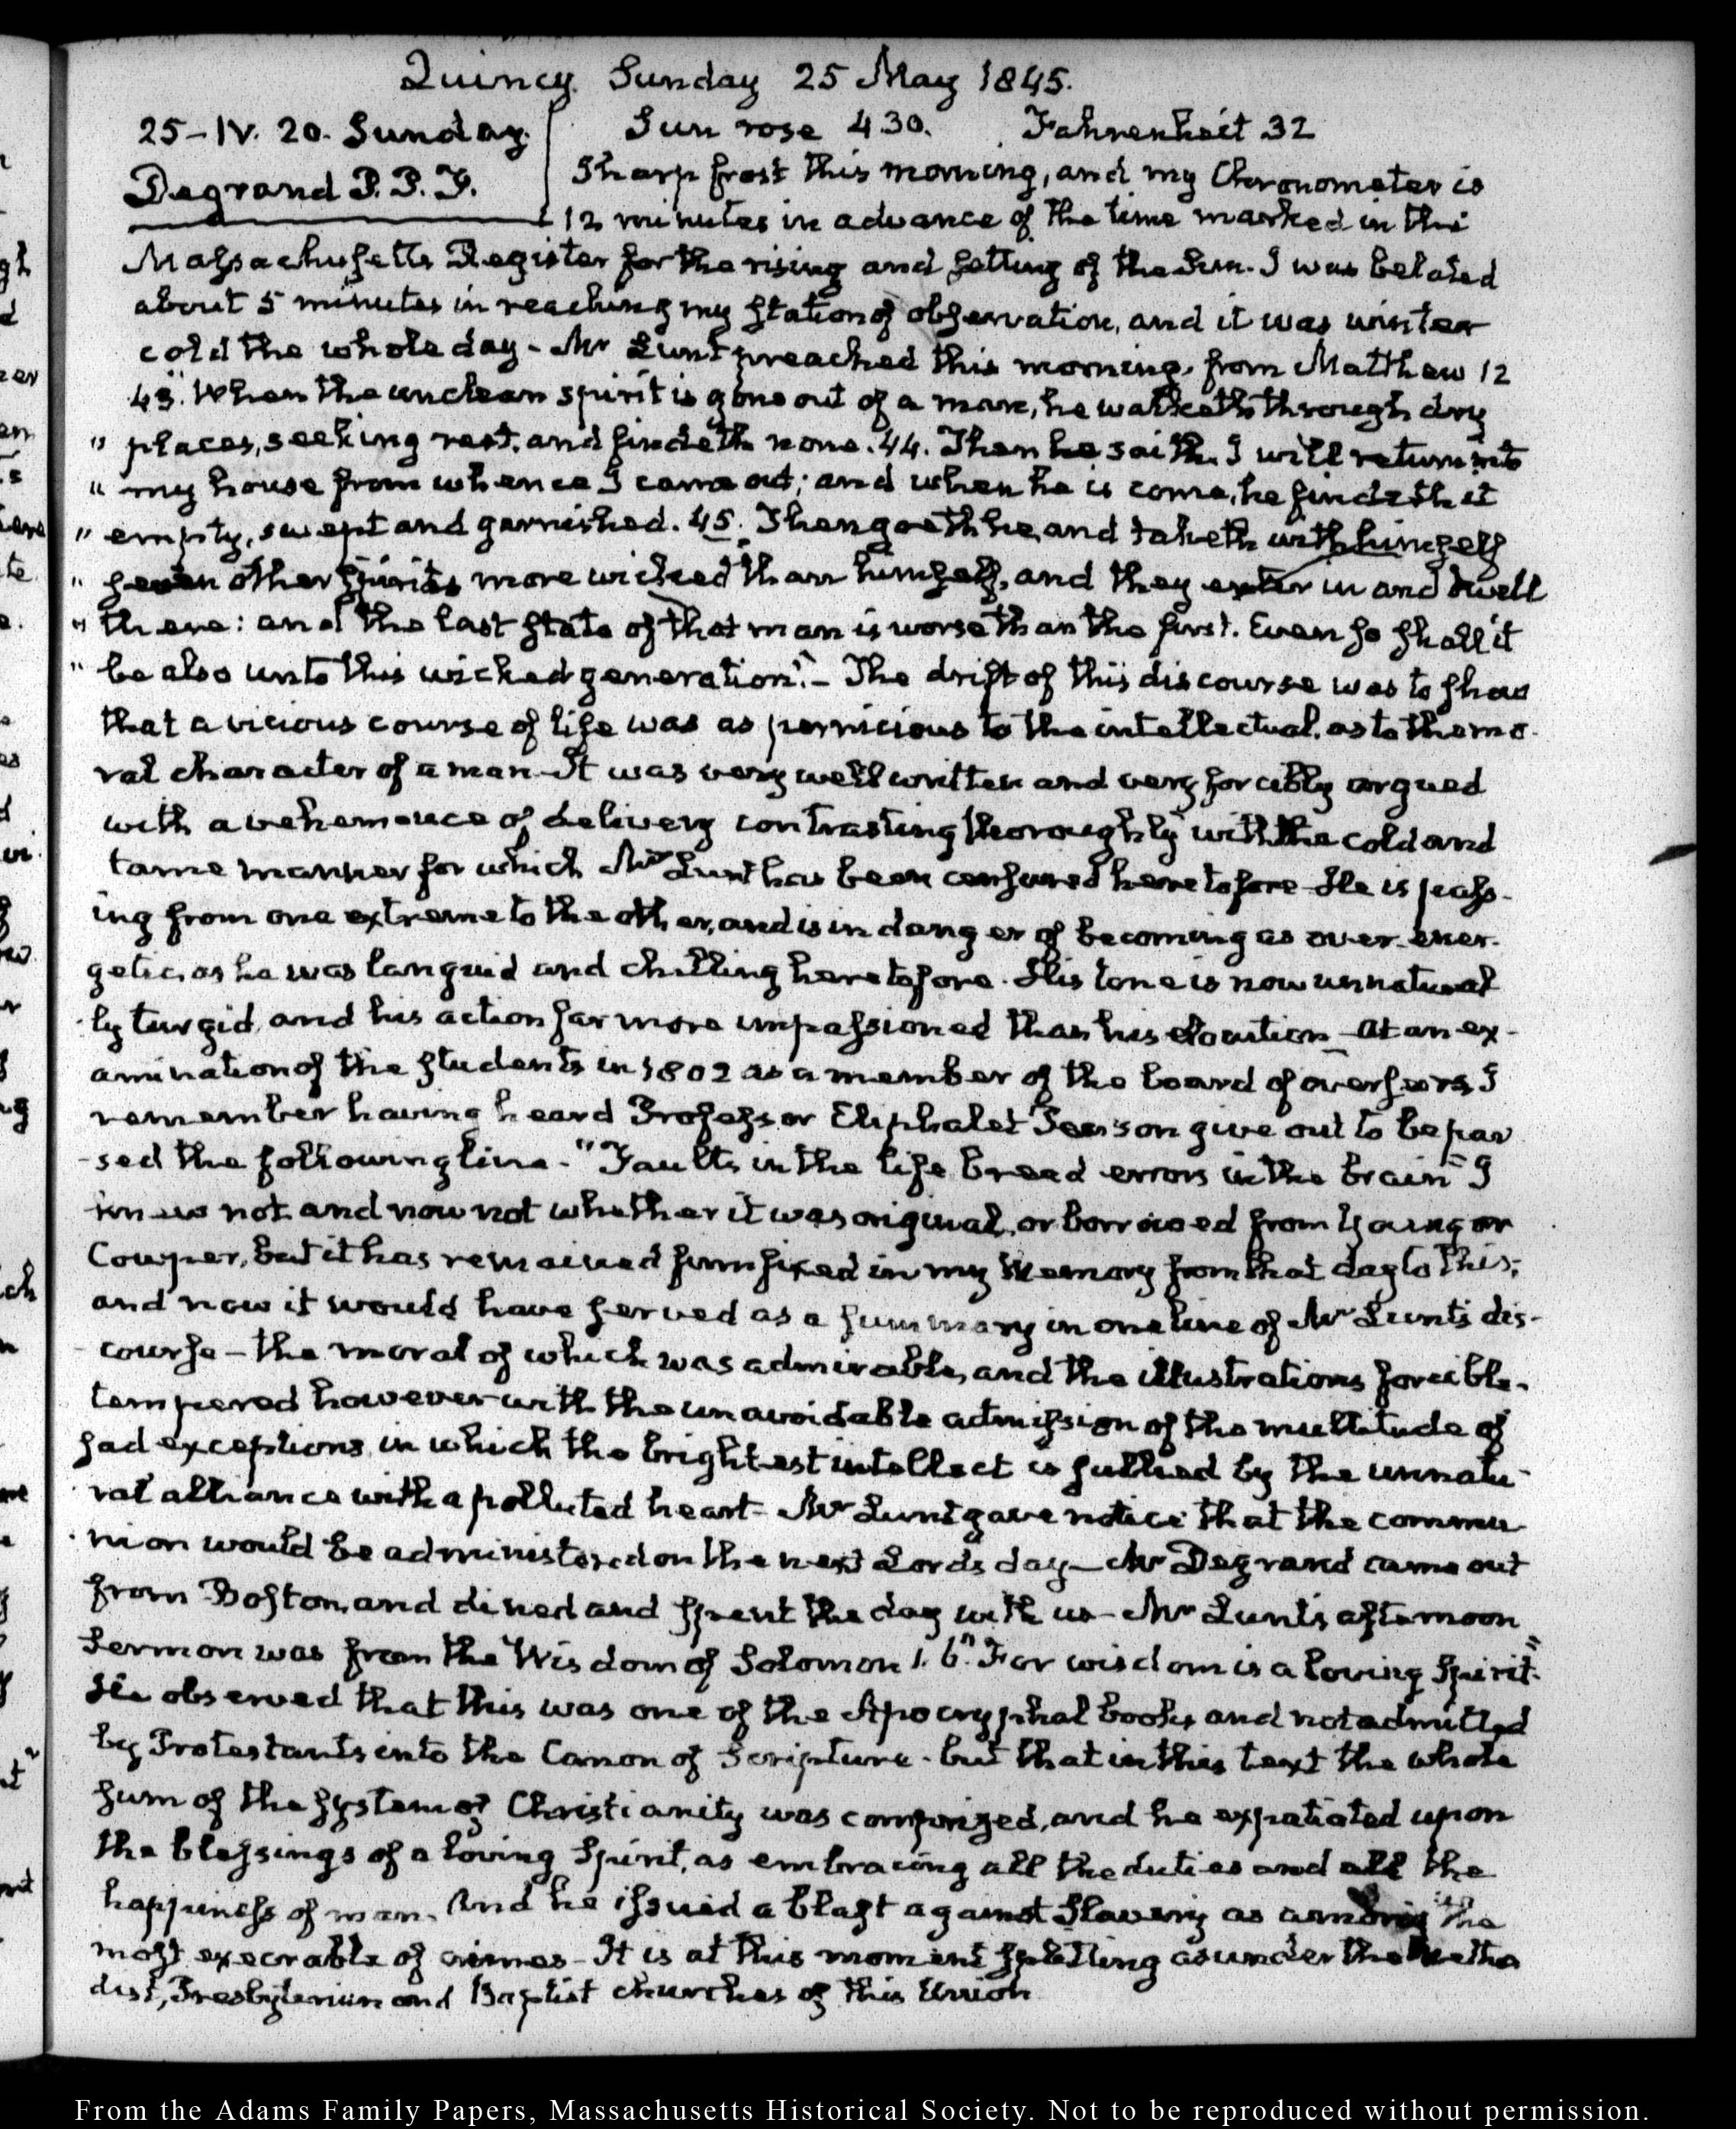 Quincy. Sunday 25 May 1845.
25-IV. 20. Sunday. Sun rose 4.30. Fahrenheit 32
Degrand P. P. F. Sharp frost this morning, and my Chronometer is
12 minutes in advance of the time marked in the
Massachusetts Register for the rising and setting of the Sun. I was belated
about 5 minutes in reaching my station of observation, and it was winter
cold the whole day - Mr Lunt preached this morning, from Matthew 12
43. When the unclean spirit is gone out of a man, he walketh through dry
" places, seeking rest, and findeth none. 44. Then he saith, I will return into
" my house from whence I came out; and when he is come, he findeth it
" empty, swept and garnished. 45. Then goeth he, and taketh with himself
" seven other spirits more wicked than himself, and they enter in and dwell
" there: and the last state of that man is worse than the first. Even so shall it
" be also unto this wicked generation." - The drift of this discourse was to shew
that a vicious course of life was as pernicious to the intellectual, as to the mo-
ral character of a man - It was very well written and very forcibly argued
with a vehemence of delivery contrasting thoroughly with the cold and
tame manner for which Mr Lunt has been censured heretofore - He is pass-
ing from one extreme to the other, and is in danger of becoming as over-ener-
getic, as he was languid and chilling heretofore. His tone is now unnatural-
ly turgid, and his action far more impassioned than his elocution - At an ex-
amination of the students in 1802 as a member of the board of overseers, I
remember having heard Professor Eliphalet Pearson give out to be par-
-sed the following line - "Faults in the life breed errors in the brain" I
knew not and now not whether it was original, or borrowed from Young or
Cowper, but it has remained firm fixed in my memory from that day to this;
and now it would have served as a summary in one line of Mr Lunt's dis-
course - the moral of which was admirable, and the illustrations forcible,
tempered however with the unavoidable admission of the multitude of
sad exceptions, in which the brightest intellect is sullied by the unnatu-
ral alliance with a polluted heart - Mr Lunt gave notice that the commu-
nion would be administered on the next Lords day - Mr Degrand came out
from Boston, and dined and spent the day with us - Mr Lunt's afternoon
Sermon was from the Wisdom of Solomon 1. 6. "For wisdom is a loving Spirit."
He observed that this was one of the Apocryphal books and not admitted
by Protestants into the Canon of Scripture - but that in this text the whole
sum of the system of Christianity was comprized, and he expatiated upon
the blessings of a loving Spirit, as embracing all the duties and all the
happiness of man. And he issued a blast against Slavery as among the
most execrable of crimes - It is at this moment splitting asunder the Metho
dist, Presbyterian and Baptist churches of this Union
From the Adams Family Papers, Massachusetts Historical Society. Not to be reproduced without permission.